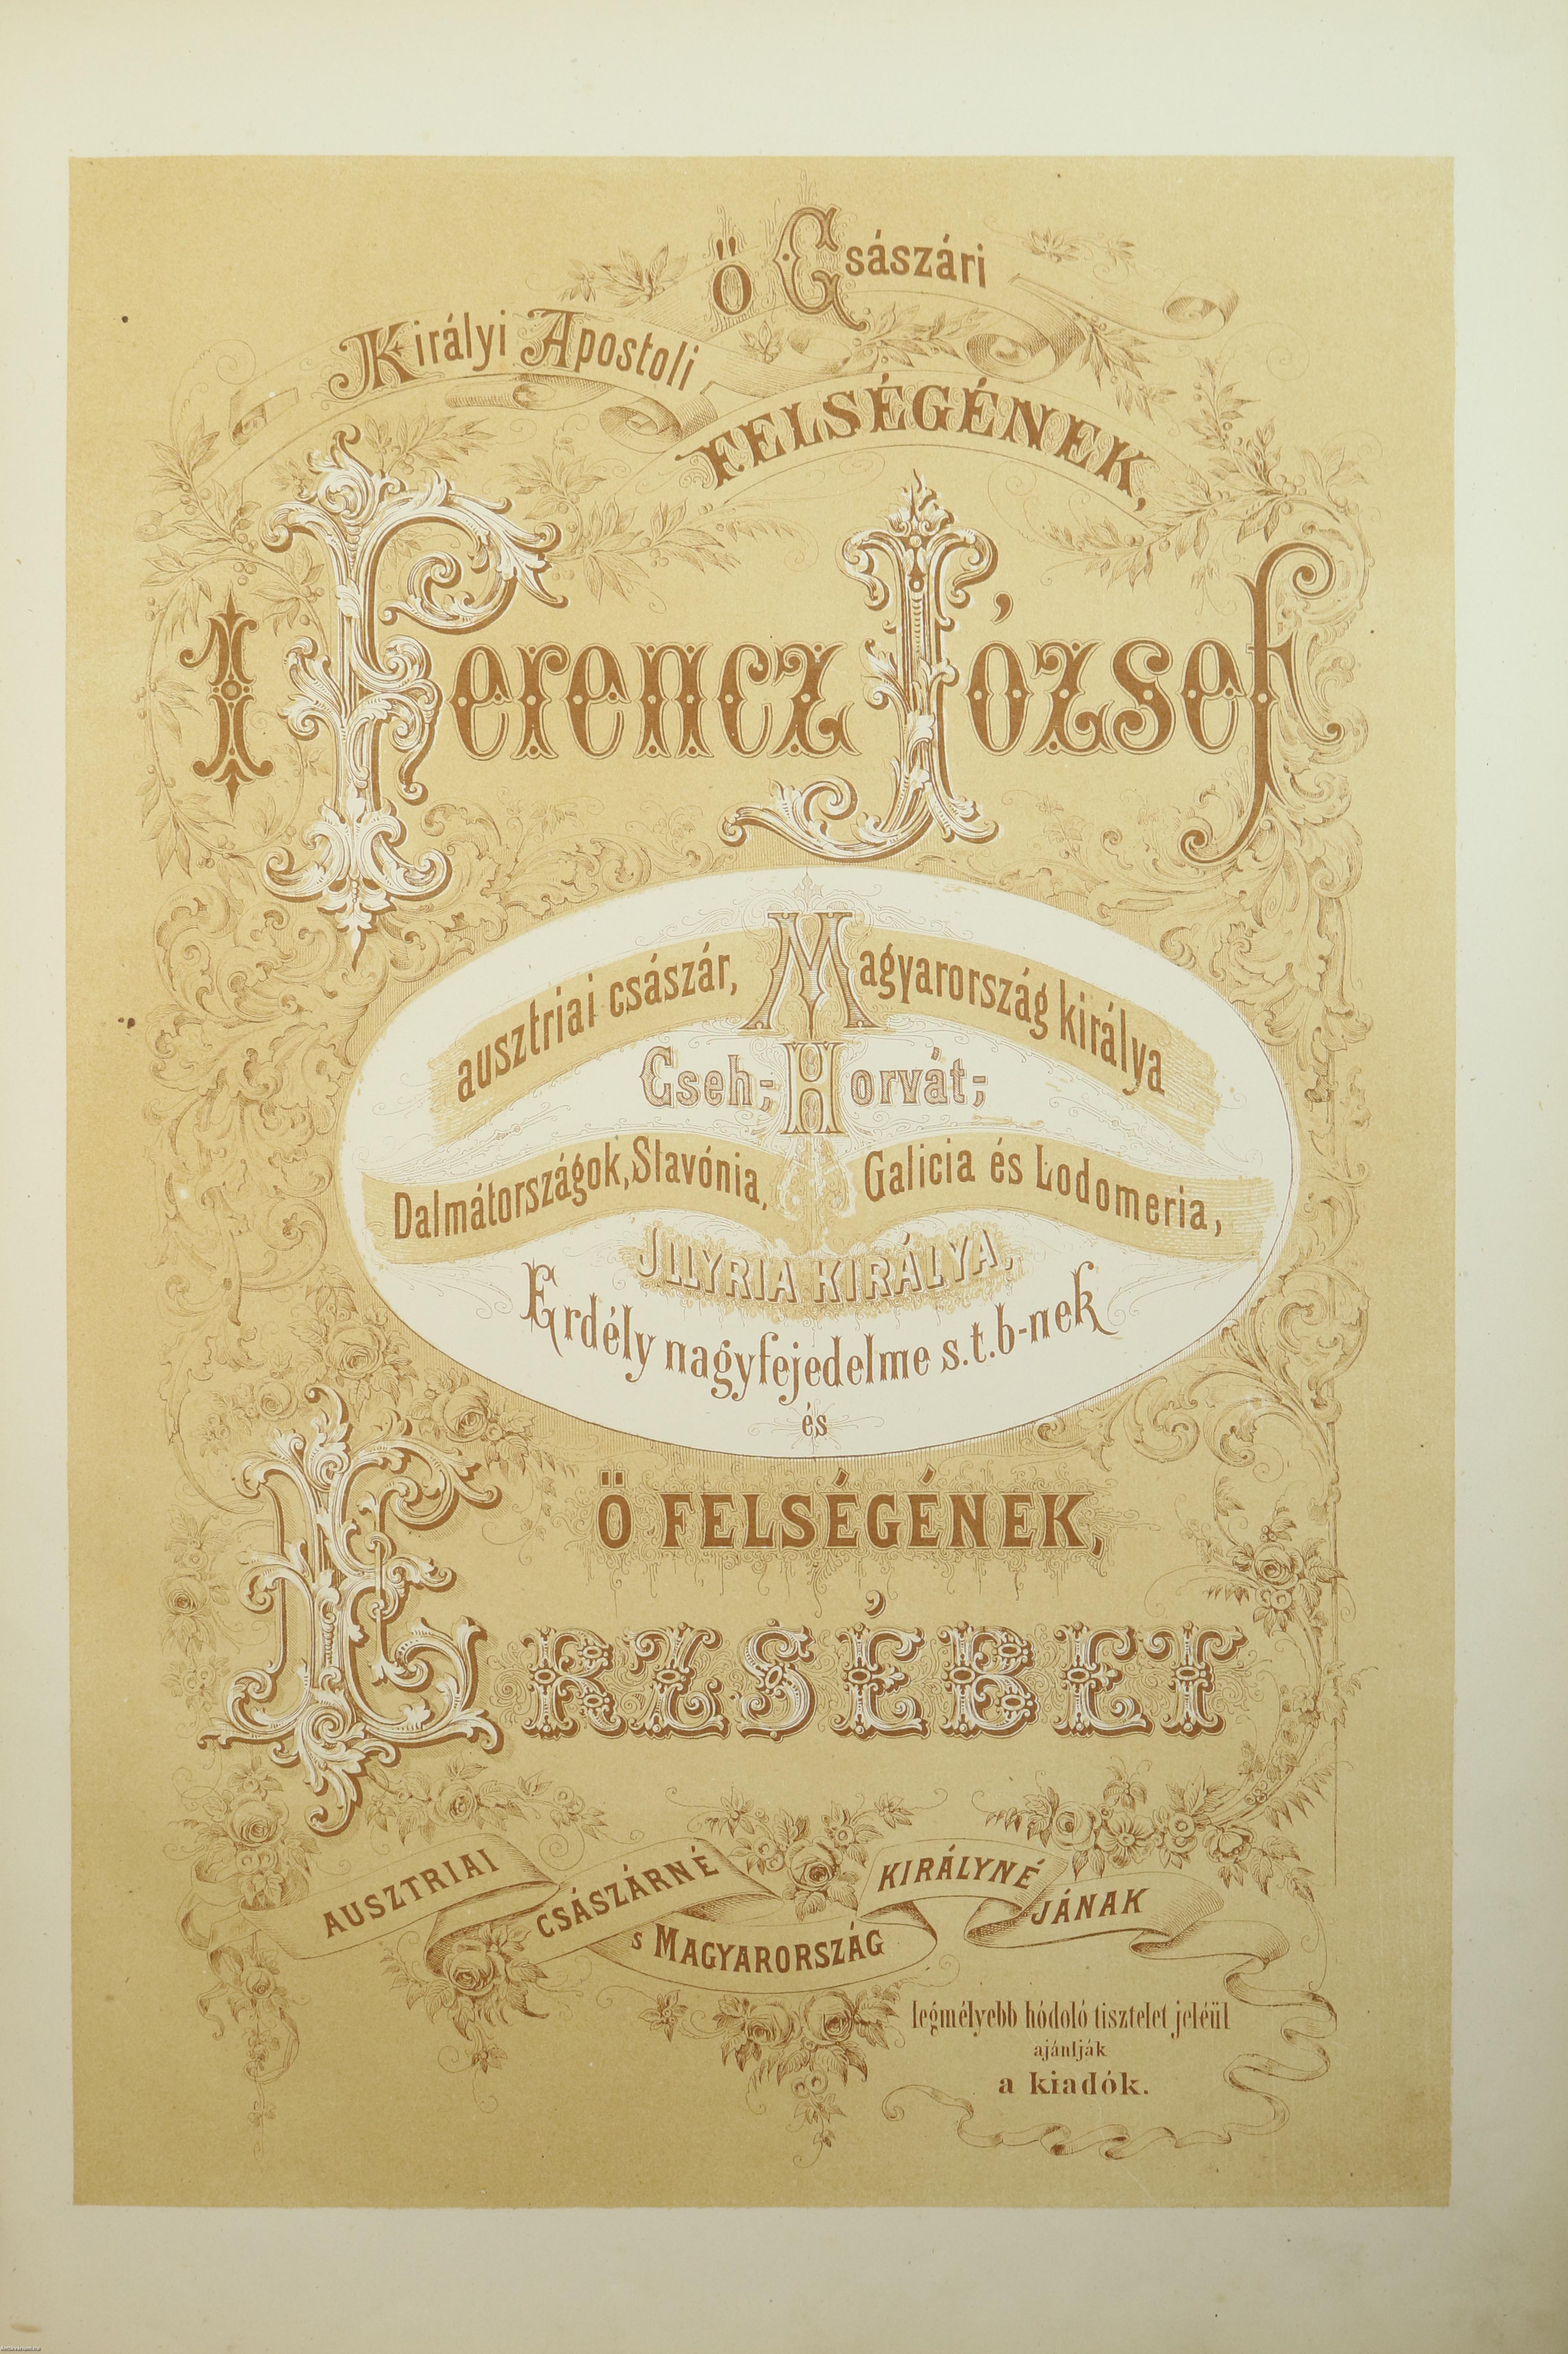 Ö Császári
Királyi Apostoli
FELSÉGÉNEK,
I Ferencz József
ausztriai császár, Magyarország királya
Cseh-, Horvát-,
Dalmátországok, Slavónia, Galicia és Lodomeria,
JLLYRIA KIRÁLYA,
Erdély nagyfejedelme s.t.b-nek
és
Ö FELSÉGÉNEK,
ERZSÉBET
AUSZTRIAI CSÁSZÁRNÉ
s MAGYARORSZÁG KIRÁLYNÉJÁNAK
legmélyebb hódoló tisztelet jeléül
ajánlják
a kiadók.